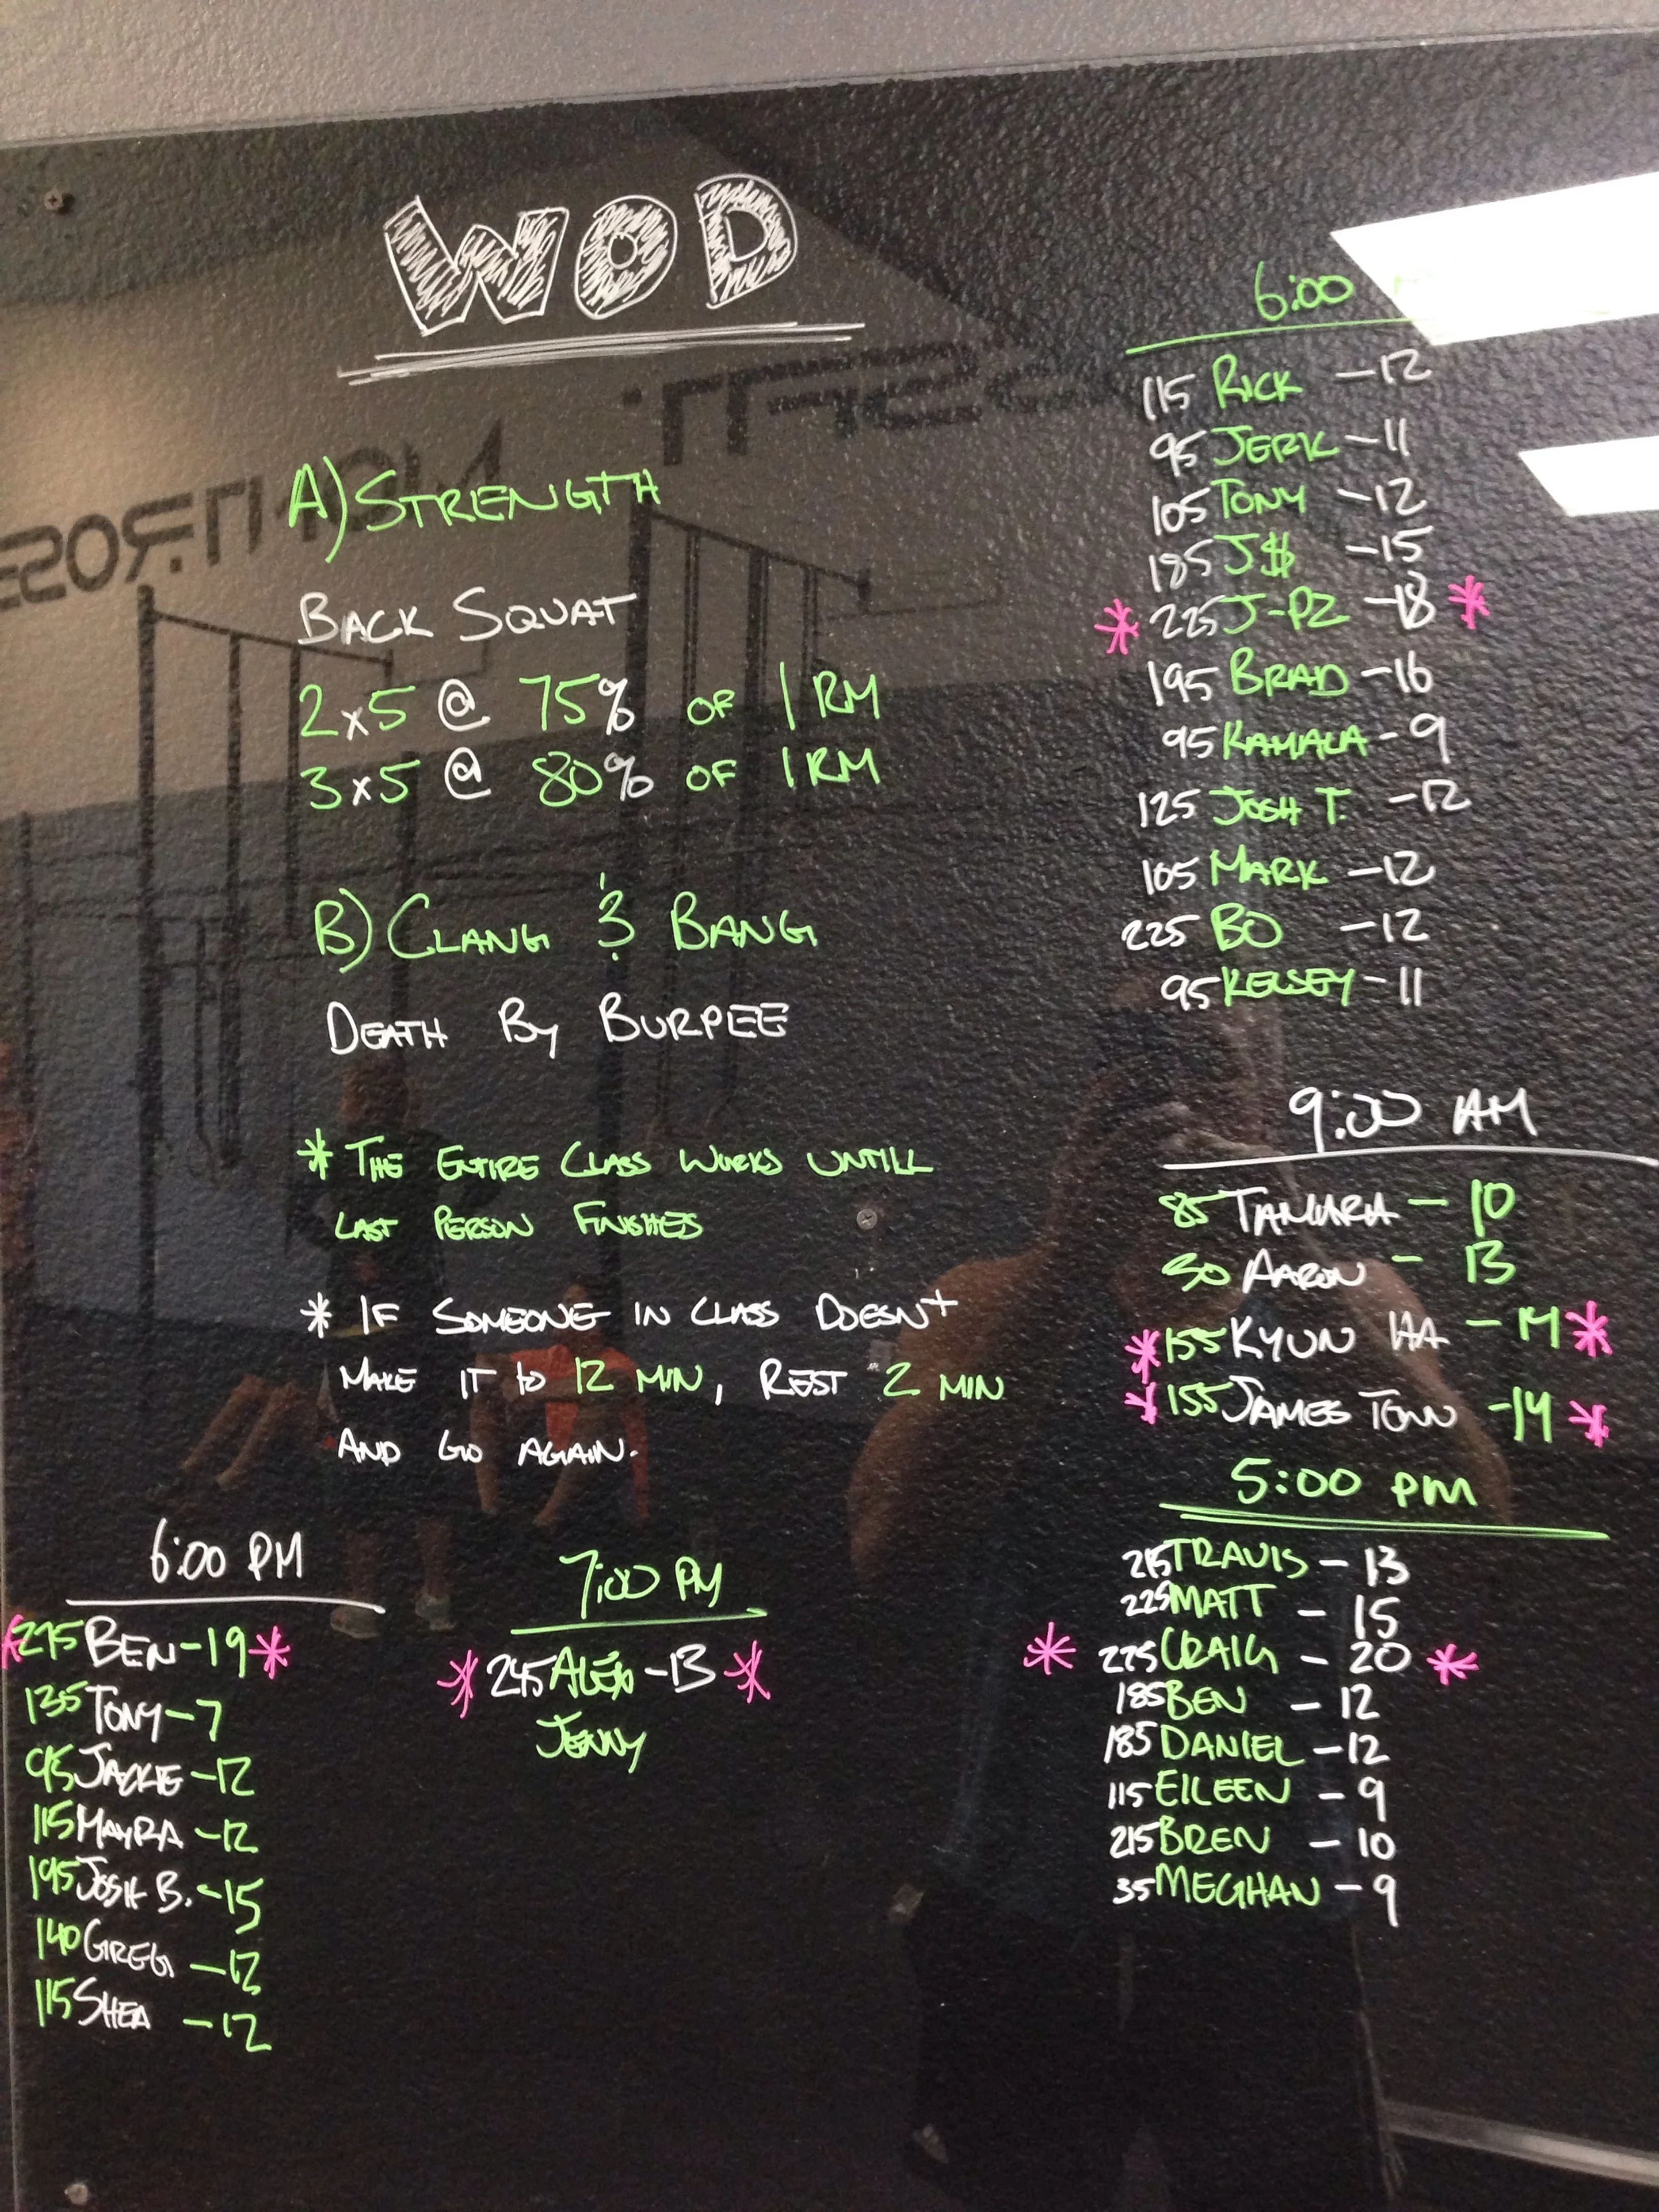 WOD
A) STRENGTH
BACK SQUAT
2x5 @ 75% OF 1 RM
3x5 @ 80% OF 1 RM
B) CLANG & BANG
DEATH BY BURPEE
* THE ENTIRE CLASS WORKS UNTILL
LAST PERSON FINISHES
* IF SOMEONE IN CLASS DOESNT
MAKE IT TO 12 MIN, REST 2 MIN
AND GO AGAIN.
6:00
115 RICK -12
95 JERK -11
105 TONY -12
185 J$ -15
* 225 J-PZ -18 *
195 BRAD -16
95 KAMALA -9
125 JOSH T. -12
105 MARK -12
225 BO -12
95 KELSEY -11
9:00 AM
85 TAMARA - 10
AARON - 13
* 155 KYUN HA - 14 *
* 155 JAMES TOWN -14 *
5:00 PM
215 TRAVIS - 13
225 MATT - 15
* 225 CRAIG - 20 *
185 BEN - 12
185 DANIEL -12
115 EILEEN - 9
215 BREN - 10
35 MEGHAN - 9
6:00 PM
* 275 BEN -19 *
135 TONY -7
95 JACKIE -12
115 MAYRA -12
195 JOSH B. -15
140 GREG -12
115 SHEA -12
7:00 PM
* 245 ALEX -13 *
JENNY